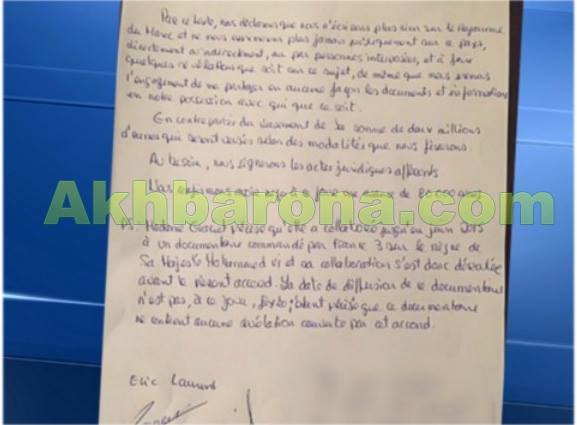 Par ce texte, nous déclarons que nous n'écrirons plus rien sur le Royaume
du Maroc et ne nous exprimerons plus jamais publiquement sur ce pays,
directement ou indirectement, ou par personnes interposées, et à faire
quelques révélations que soit sur ce sujet, de même que nous prenons
l'engagement de ne partager en aucune façon les documents et informations
en notre possession avec qui que ce soit.
En contrepartie du versement de la somme de deux millions
d'euros qui seront versés selon des modalités que nous fixerons.
Au besoin, nous signerons les actes juridiques afférents
Nous reçu à ce jour une avance de 80 000 euros
Akhbarona.com
PS: Madame Graciet précise qu'elle a collaboré jusqu'en juin 2015
à un documentaire commandé par France 3 sur le règne de
Sa Majesté Mohammed VI et sa collaboration s'est donc déroulée
avant le présent accord. La date de diffusion de ce documentaire
n'est pas, à ce jour, fixée; étant précisé que ce documentaire
ne contient aucune révélation couverte par cet accord.
Eric Laurent